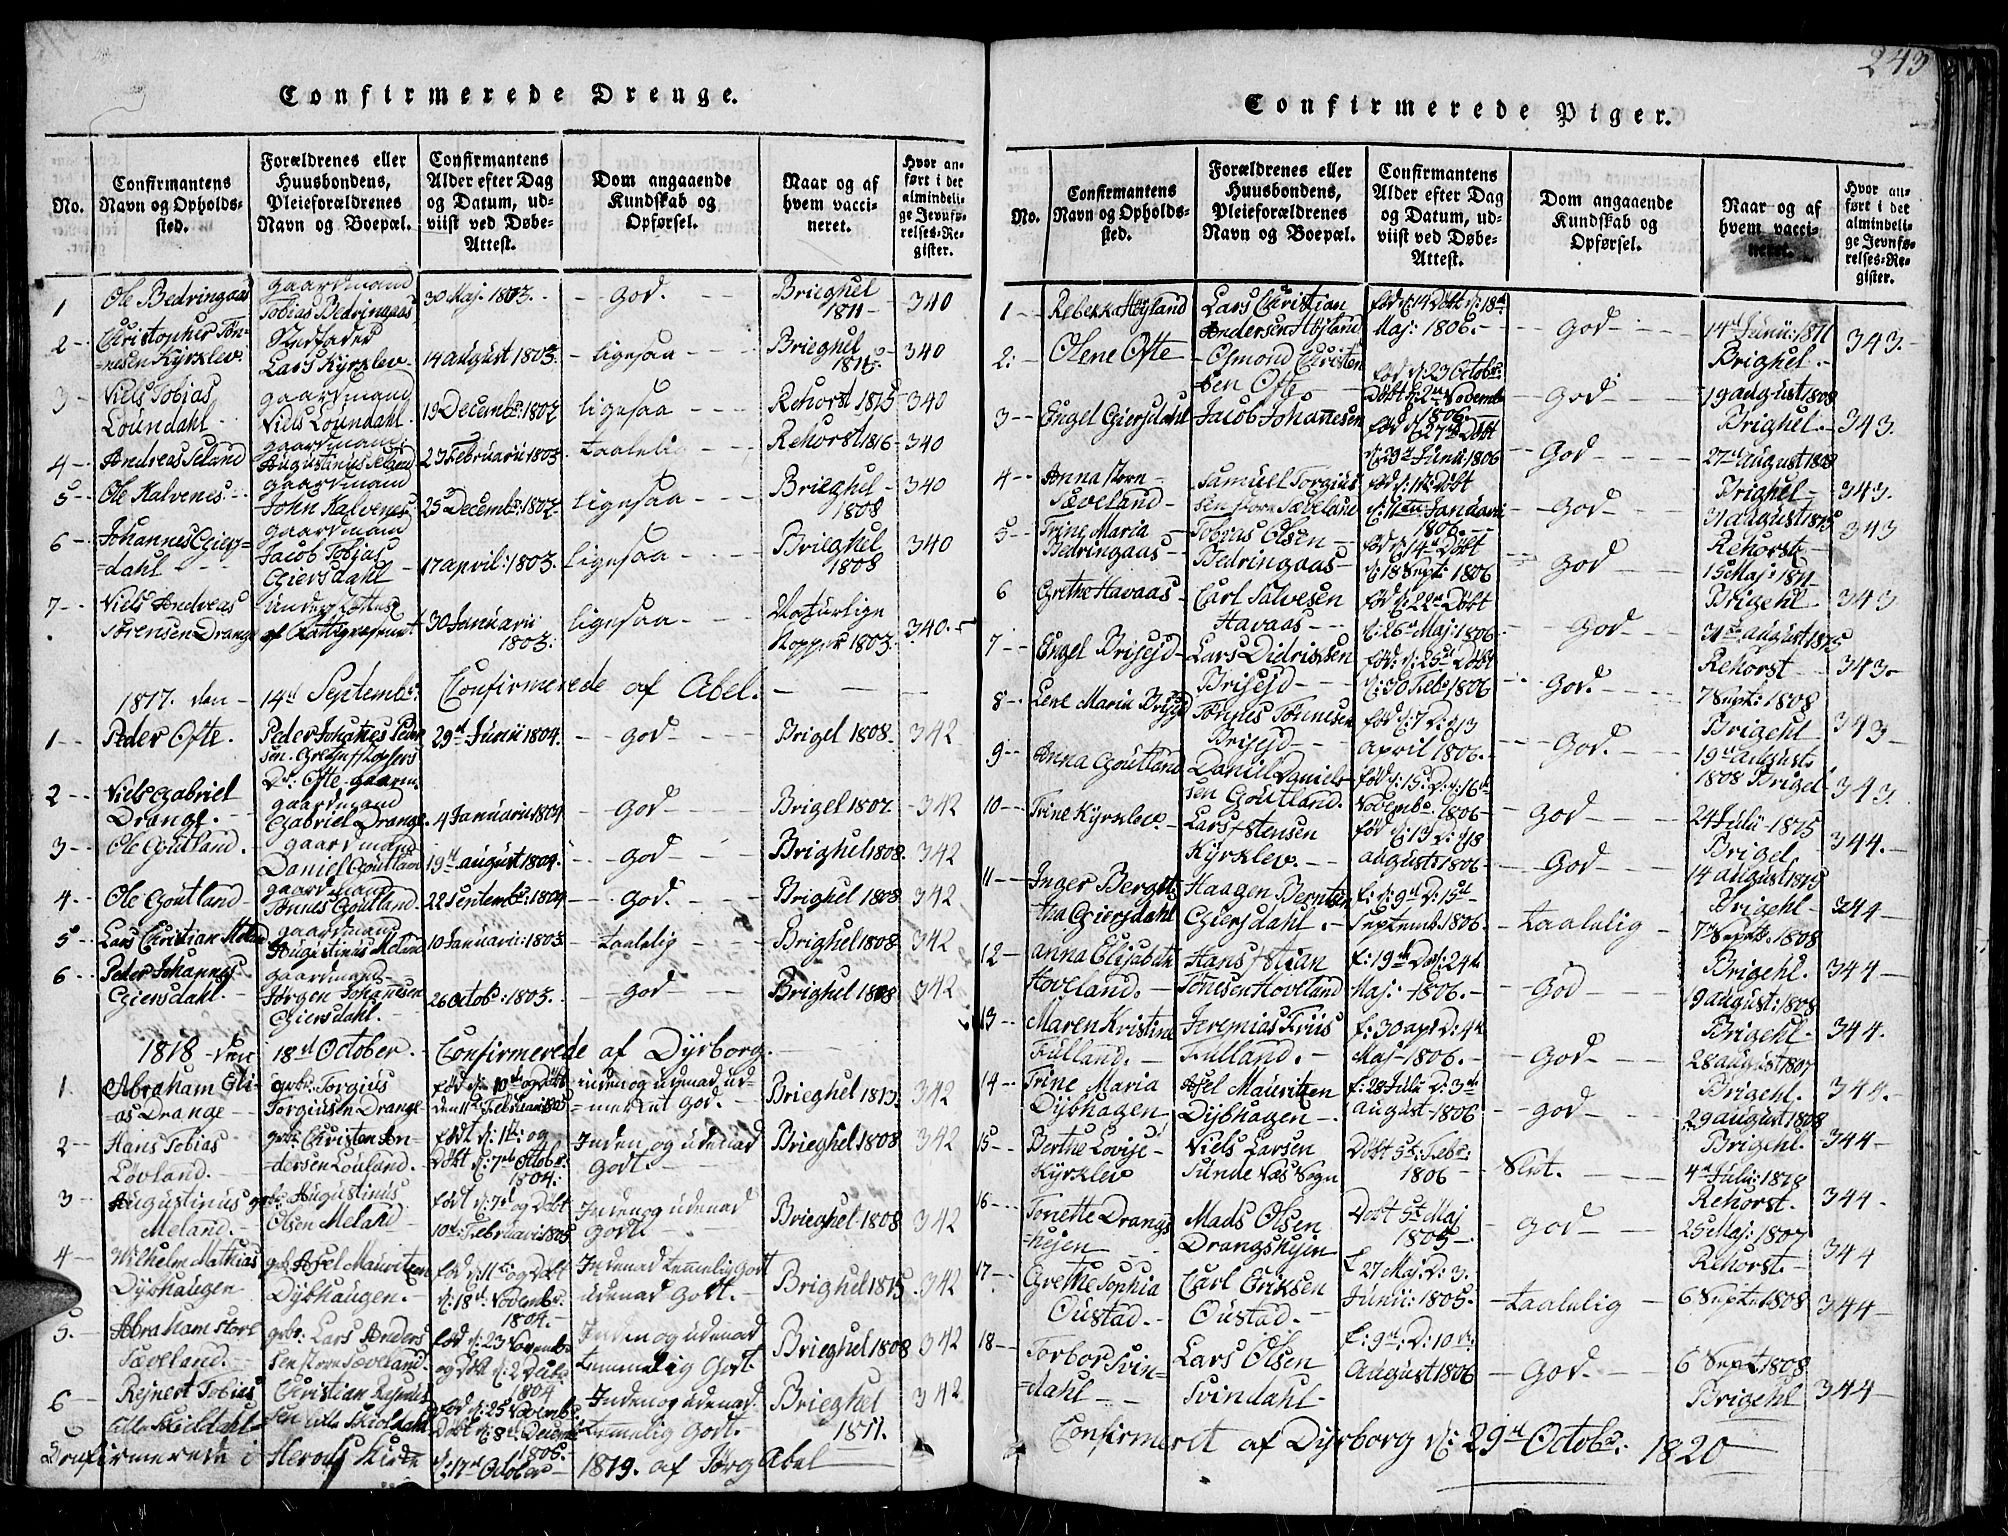 Confirmerede Drenge.
No.
Confirmantens Navn og Opholds-sted.
Forældrenes eller Huusbondens, Pleieforældrenes Navn og Boepæl.
Confirmantens Alder efter Dag og Datum, ud-viist ved Døbe-Attest.
Dom angaaende Kundskab og Opførsel.
Naar og af hvem vacci-neret.
Hvor an-ført i det almindeli-ge Jevnfø-relses-Re-gister.
1 Ole Bedringaas gaardmand Tobias Bedringaas 30 Maj 1803. - God. - Brieghel 1811 - 340
2 - Christopher Tøn-nesen Kyrklev Stedfader Lars Kyrklev - 14 august 1803. - ligesaa - Brieghel 1815 - 340
3 - Niels Tobias Loundahl - gaardmand Niels Loundahl. 19 Decembr: 1802 ligesaa - Rehorst 1815 - 340
4 - Andreas Seland gaardmand Augustinus Seland 23 Februarii 1803. taalelig - Rehorst 1816 - 340
5 - Ole Kalvenes - gaardmand John Kalvenes 25 Decembr: 1802. ligesaa - Brieghel 1808 - 340
6 - Johannes Gjers=dahl gaardmand Jacob Tobias Gjersdahl - 17 april: 1803. ligesaa - Brieghel 1808 340
7 - Niels Andreas Sørensen Drange 30 Januarii 1803. ligesaa - Naturlige Kopper 1803. 340. -
1817. den - 14de Septembr: Confirmerede af Abel. -
1 - Peder Ofte. Peder Johannes Peder-sen. Ofte gaarm. 29de Junii 1804. - god - Brigel 1808. 342
2 - Niels Gabriel Drange. - gaardmand Gabriel Drange. 4 Januarii 1804. - God - Brigel 1802. - 342
3 - Ole Goutland. - gaardmand Daniel Goutland 19de august 1804. - God - Brighel 1808. 342
4. - Ole Goutland - gaardmand Tønnes Goutland. 22 Septembr: 1804 - God. - Brighel 1808 342
5 - Lars Christian Meland gaardmand Augustinus Meland 10 Januarii: 1803. - taalelig - Brighel 1808. 342
6 - Peder Johannes Gjersdahl. - gaardmand Jørgen Johannesen Gjersdahl. - 26 Octob: 1803. - god - Brighel 1808 342
1818 - den 18de October. - Confirmerede af Dyrborg. -
1. Abraham Eli-as Drange - gbr: Torgius Torgiusen Drange - fød d: 10de og døbt den 11te Februari 1805 inden og udenad ud-mærket God. - Brieghel 1813. 342
2 - Hans Tobias Løvland. - gbr: Christen An-dersen Louland. født d: 1te: og døbt d: 7de Octobr. 1804. Inden og udenad Godt - Brieghel 1808 342
3 - Augustinus Meland. - gbr: Augustinus Olsen Meland - født d: 7d og Døbt 10de Februari: 1805 Inden og udenad Godt. - Brieghel 1808 342
4 - Wilhelm Mathias Dybhaugen gbr: Axel Mauritzen Dybhaugen. - fød d: 11te: og døbt d: 18de. Novembr. 1804. - Indenad temmelig Godt udenad Godt. - Brighel 1815. 342
5. - Abraham Store Sæveland. - gbr: Lars Anders sen Store Sæveland. fød d: 23 Novembr og døbt d: 2 Decbr 1804 Inden og udenad temmelig Godt Brieghel 1808 342
6 - Rejnert Tobias Lille Skioldahl Christian Rasmus sen Lille Skioldahl. fød d: 25 Novembr. Døbt d: 8de Decemb. 1805. Inden og udenad. temmelig Godt. - Brieghel 1811. 342
Confirmerede i Herads Kirke d: 17de October 1819. af Jørg Abel
243
Confirmerede Piger.
No.
Confirmantens Navn og Opholds-sted.
Forældrenes eller Huusbondens, Pleieforældrenes Navn og Boepæl.
Confirmantens Alder efter Dag og Datum, ud-viist ved Døbe-Attest.
Dom angaaende Kundskab og Opførsel.
Naar og af hvem vacci-neret.
Hvor an-ført i det almindeli-ge Jevnfø-relses-Re-gister.
1 - Rebekka Højland Lars Christian Andersen Højland fød d: 14 Døbt d: 18de Maj: 1806. - - God - 14de Junii: 1811 Brighel. - 343. -
2: - Olene Ofte - Osmond Christen sen Ofte - fød d: 23 Octobr: Døbt d: 2de Novemb 1806. - God - 19 august 1808 Brighel. - 343.
3 - Engel Gjersdahl Jacob Johannesen fød d: 27de Døbt d: 29de Junii 1806 - God - 27de august 1808 Brighel - 343.
4 - Anna Store - Sæveland - Samuel Torgius sen Store Sæveland fød d: 1te Døbt d: 11te Januari 1806. - - God - 31 august 1815 Rehorst - 343
5 - Trine Maria Bedringaas - Tobias Olsen Bedringaas - fød d: 14de Døbt d: 18 Sept: 1806 - God - 15 Maj: 1811 Brigehl - 343
6 Grethe Havaas - Carl Salvesen Havaas - fød d: 22de Døbt d: 26de Maj: 1806. - God - 31te august 1815 Rehorst - 343. -
7 - Engel Brisejd - Lars Didriksen Brisejd - fød: d: 25de Døbt d: 30 Feb: 1806 - God. - 7 Sept: 1808 Brigehl 343 -
8 - Lene Maria Brisejd Tønnes Tønnesen Brisejd - fød d: 7 D: d: 13 april 1806. - - God. - 19de augusts 1808 Brigel 343.
9 - Anna Goutland Daniel Daniel-sen Goutland. fød d: 15: D: d: 16de Novembr. 1806 - God - 24 Julii - 1815 Brigel 344. -
10 - Trine Kyrklev. - Lars Stensen Kyrklev. - fød d: 13 D: d: 18 august: 1806 - - God - 14 august 1815 Brigehl - 344 -
11 - Inger Bergit-tha Gjersdahl Haagen Berntsen Gjersdahl. - f: d: 9de D: 15de Septemb. 1806. - taalelig - 7de Septbr. 1808 Brigehl. 344 -
12 - Anna Elisabeth Hovland. - Hans Stian Tønesen Hovland f: 19de D: d: 24de Maj: 1806. - - God - 9 august: 1808 Brigehl. 344.
13 - Maren Kristine Fulland. - Jeremias Friis Fulland. - f: 30 apr: D: 4de Maj - 1806. - - God - 28 august 1807 Brigehl. 344.
14 - Trine Maria Dybhagen Axel Mauritzen Dybhagen. - f: 28 Julii D: 3de august - 1806 - God - 29 august 1808 Brigehl. 344 -
15 - Berthe Lovise Kyrklev Niels Larsen Sunde Næs Sogn Døbt 5te: Febr: 1806 - Slet. - 4de Julii: 1818 Rehorst. 344 -
16 - Tonette Drangs=hejen - Mads Olsen Drangshejen Døbt 5te Maj 1805 - - God - 25 Maj: 1807 Rehorst. - 344
17 - Grethe Sophia Oustad. - Carl Eriksen Oustad. - f. 27 Maj: D: 3. Junii: 1805. - taalelig - 6 Sept: 1808 344 -
18 - Torbor Svin=dahl - Lars Olsen Svindahl - f: 9de: D: 10de. August 1806 - God - 6 Sept 1808 Brigehl 344 -
Confirmeret af Dyrborg d: 29de Octobr: 1820